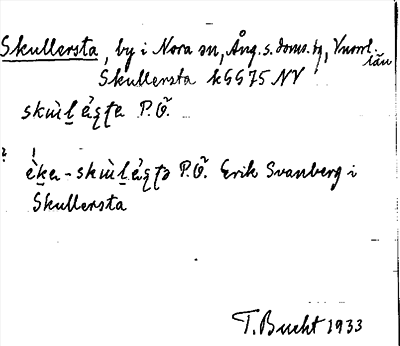 Skullersta, by i Nora sn, Ång. s. doms. hg, Vnorrl.
län
Skullersta k667 5 NV
P.Ö.
P.Ö. Erik Svanberg i
Skullersta
T. Bucht 1933